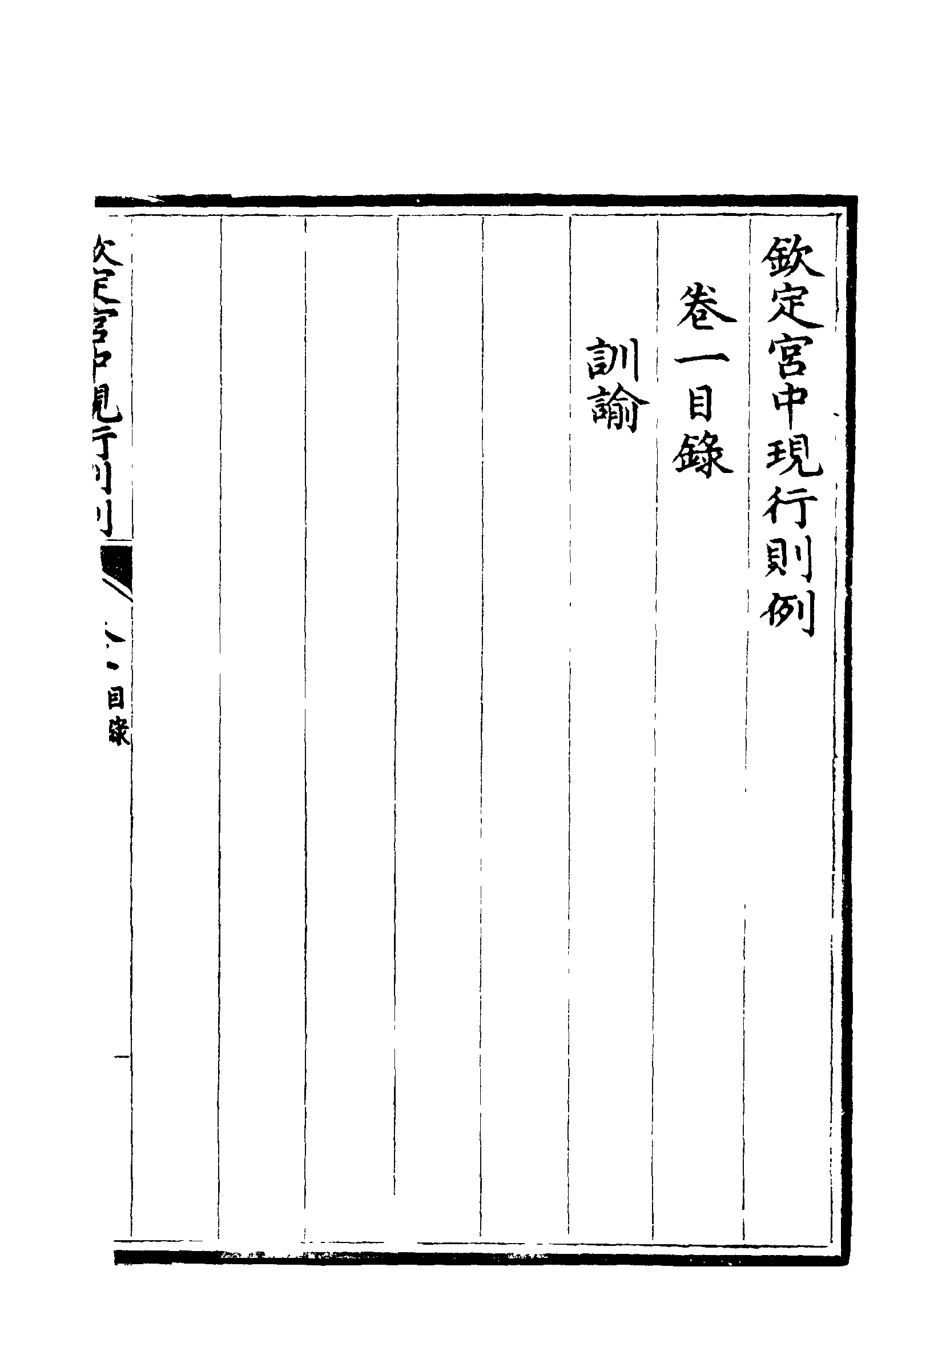 欽定宮中現行則例
卷一目錄
訓諭
欽定宮中現行則例
目錄